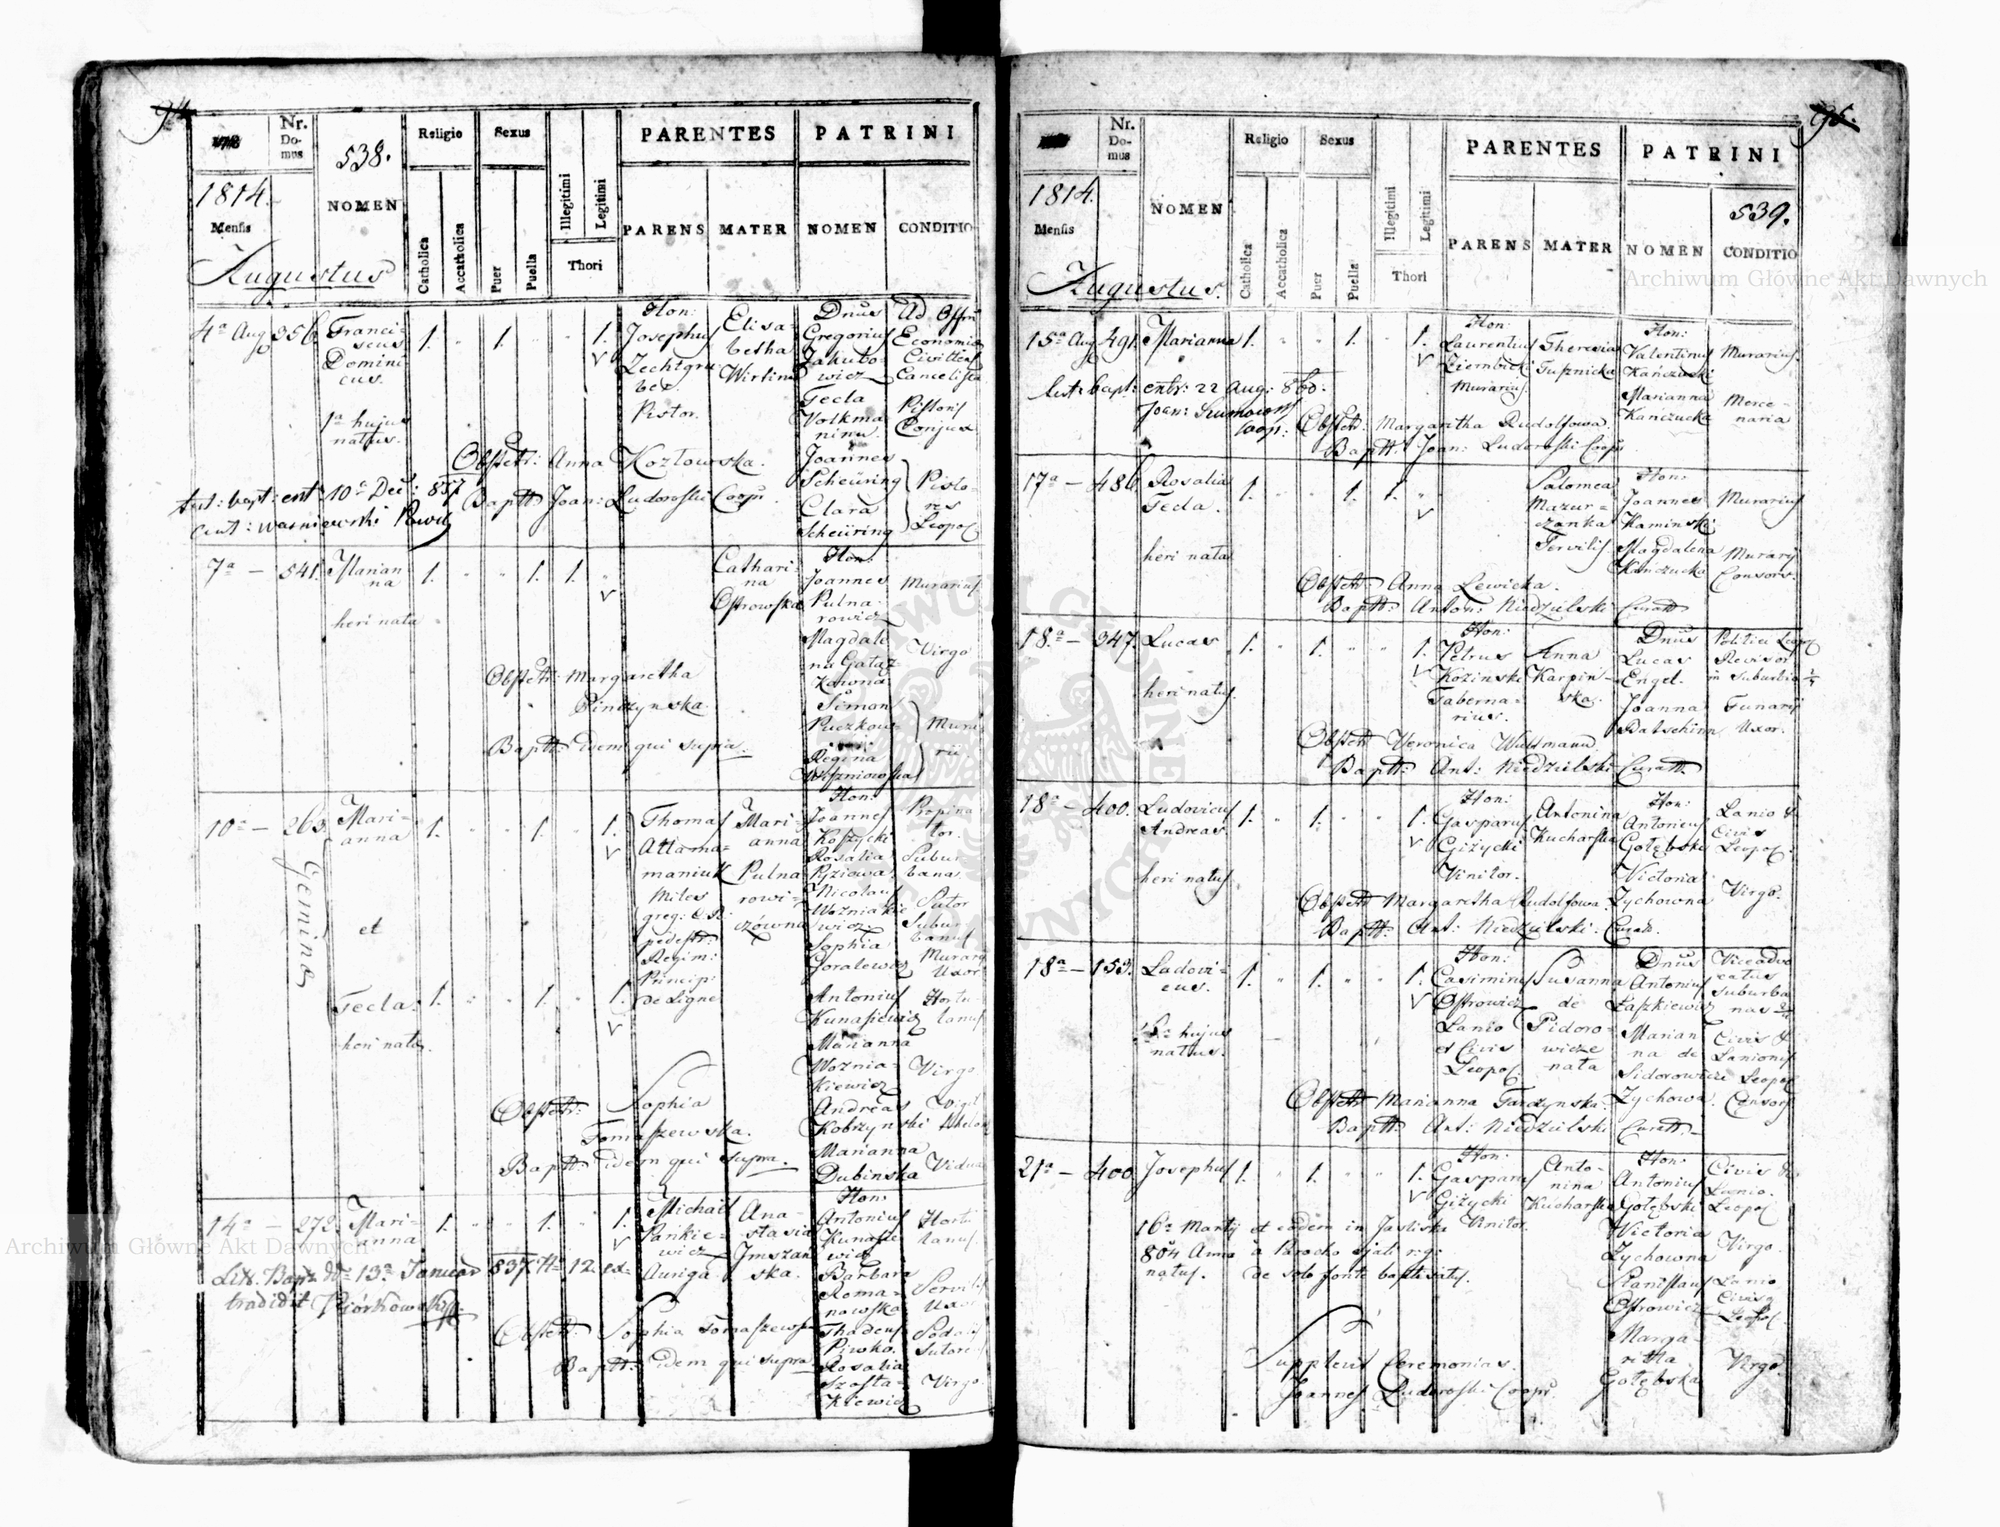 94
Nr. Domus
538.
NOMEN
Religio
Catholica
Accatholica
Sexus
Puer
Puella
Illegitimi
Legitimi
Thori
PARENTES
PARENS
MATER
PATRINI
NOMEN
CONDITIO
1814.
Mensis
Augustus
4a Aug 356.
Franciscus
Dominicus.
1a hujus
natus.
1. " 1. " " 1.
Hon:
Josephus
Zechtgruber
Pistor.
Elisabetha
Wirtin
Dnus
Gregorius
Jakubowicz
Tecla
Volkmanina.
Joannes
Scheüring
Clara
Scheüring
Ad Offm
Economia
Civitten
Cancelista
Pistoris
Conjux
Pistores
Leopol
Obstetr: Anna Kozłowska.
Baptt Joan: Ludoroski Coopr
test: bapt: ent: 10a Dec: 857
7a — 541.
Marianna
heri nata
1. " " 1. 1. "
Catharina
Ostrowska
Hon:
Joannes
Pulnarowicz
Magdalena
Simon
Regina
Murarius
Virgo
Murarii
Obstetr: Margaretha
Pinczynska.
Baptt: idem qui supra.
10a — 263.
Geminæ
Marianna
et
Tecla.
heri natæ.
1. " " 1. " 1.
1. " " 1. " 1.
Thomas
Attamaniuk
Miles
greg: C.R.
pedestr:
Regim:
Princip:
de Ligne
Marianna
Pulnarowiczówna
Hon:
Joannes
Koszycki
Rosalia
Pyziowa
Nicolaus
Woźniakiewicz
Sophia
Goralewicz
Antonius
Kunasiewicz
Marianna
Wozniakiewicz
Andreas
Kobrzynski
Marianna
Dubinska
Propinator.
Suburbana
Sutor
Suburbanus
Murarii
Uxor
Hortulanus
Virgo
Vidua
Obstetr: Sophia
Tomaszewska.
Baptt: idem qui supra.
14a — 272.
Marianna
1. " " 1. " 1.
Michaël
Pankiewicz
Auriga
Anastasia
Jmszanska.
Hon:
Antonius
Kunasiewicz
Barbara
Romanowska
Thadeus
Piwko.
Rosalia
Szostakiewicz
Hortulanus
Virgo.
Litt. Bapt: dto 13a Januar 837
tradidit Piórkowski
Obstetr: Sophia Tomaszewska
Baptt: idem qui supra
95.
Nr. Domus
NOMEN
Religio
Catholica
Accatholica
Sexus
Puer
Puella
Illegitimi
Legitimi
Thori
PARENTES
PARENS
MATER
PATRINI
539.
NOMEN
CONDITIO
1814.
Mensis
Augustus.
15a Aug 491.
Marianna
1. " " 1. " 1.
Hon:
Laurentius
Ziembicki
Murarius
Theresia
Tusznicka
Hon:
Valentinus
Kańczucki
Marianna
Kańczucka
Murarius.
Mercenaria
test: bapt: extr: 22 Aug: 860.
Obstetr: Margaretha Rudolfowa.
Baptt: Joan: Ludoroski Coopr
17a — 486.
Rosalia
Tecla.
heri nata
1. " " 1. 1. "
Salomea
Mazurczanka
Servilis.
Hon:
Joannes
Kaminski
Magdalena
Kańczucka
Murarius
Murarij
Consors.
Obstetr: Anna Lewicka.
Baptt: Anton: Niedzielski Curatt
18a — 347.
Lucas
heri natus.
1. " 1. " " 1.
Hon:
Petrus
Kozinski
Tabernarius.
Anna
Karpinska.
Dnus
Lucas
Engel.
Joanna
Batschinn
Politiei Leopol
Revisor
in Suburbio
Funarij
Uxor.
Obstetr: Veronica Wultmann.
Baptt: Ant: Niedzielski Curatt.
18a — 400.
Ludovicus
Andreas.
heri natus.
1. " 1. " " 1.
Hon:
Gasparus
Giżycki
Vinitor.
Antonina
Kucharska
Hon:
Antonius
Gołębski
Victoria
Zychowna
Lanio &
Civis
Leopol:
Virgo.
Obstetr: Margaretha Rudolfowa.
Baptt: Ant: Niedzielski. Curatt.
18a — 153.
Ludovicus.
natus.
1. " 1. " " 1.
Hon:
Casimirus
Ostrowicz
Lanio
et Civis
Leopol.
Susanna
de
Pidorowicze
nata
Dnus
Antonius
Łaszkiewicz
Marianna de
Sidorowicze
Zychowa.
Viceadvocatus
Suburbanus
Civis &
Lanionis
Leopol
Consors
Obstetr: Marianna Tarczynska.
Baptt: Ant: Niedzielski Curatt.
21a — 400.
Josephus
1. " 1. " " 1.
Hon:
Gasparus
Giżycki
Vinitor.
Antonina
Kucharska
Hon:
Antonius
Gołębski
Victoria
Zychowna
Stanislaus
Ostrowicz
Margaritta
Gołębska
Civis &
Lanio.
Leopol
Virgo.
Lanio
Civisq
Leopol
Virgo.
16a Martij et eodem in Jasliska
804 Anno a Parocho
natus. de solo fonte baptisatus.
Supplevit Ceremonias.
Joannes Ludoroski Coopr.
Archiwum Główne Akt Dawnych
Archiwum Główne Akt Dawnych
ARCHIWUM GŁÓWNE AKT DAWNYCH